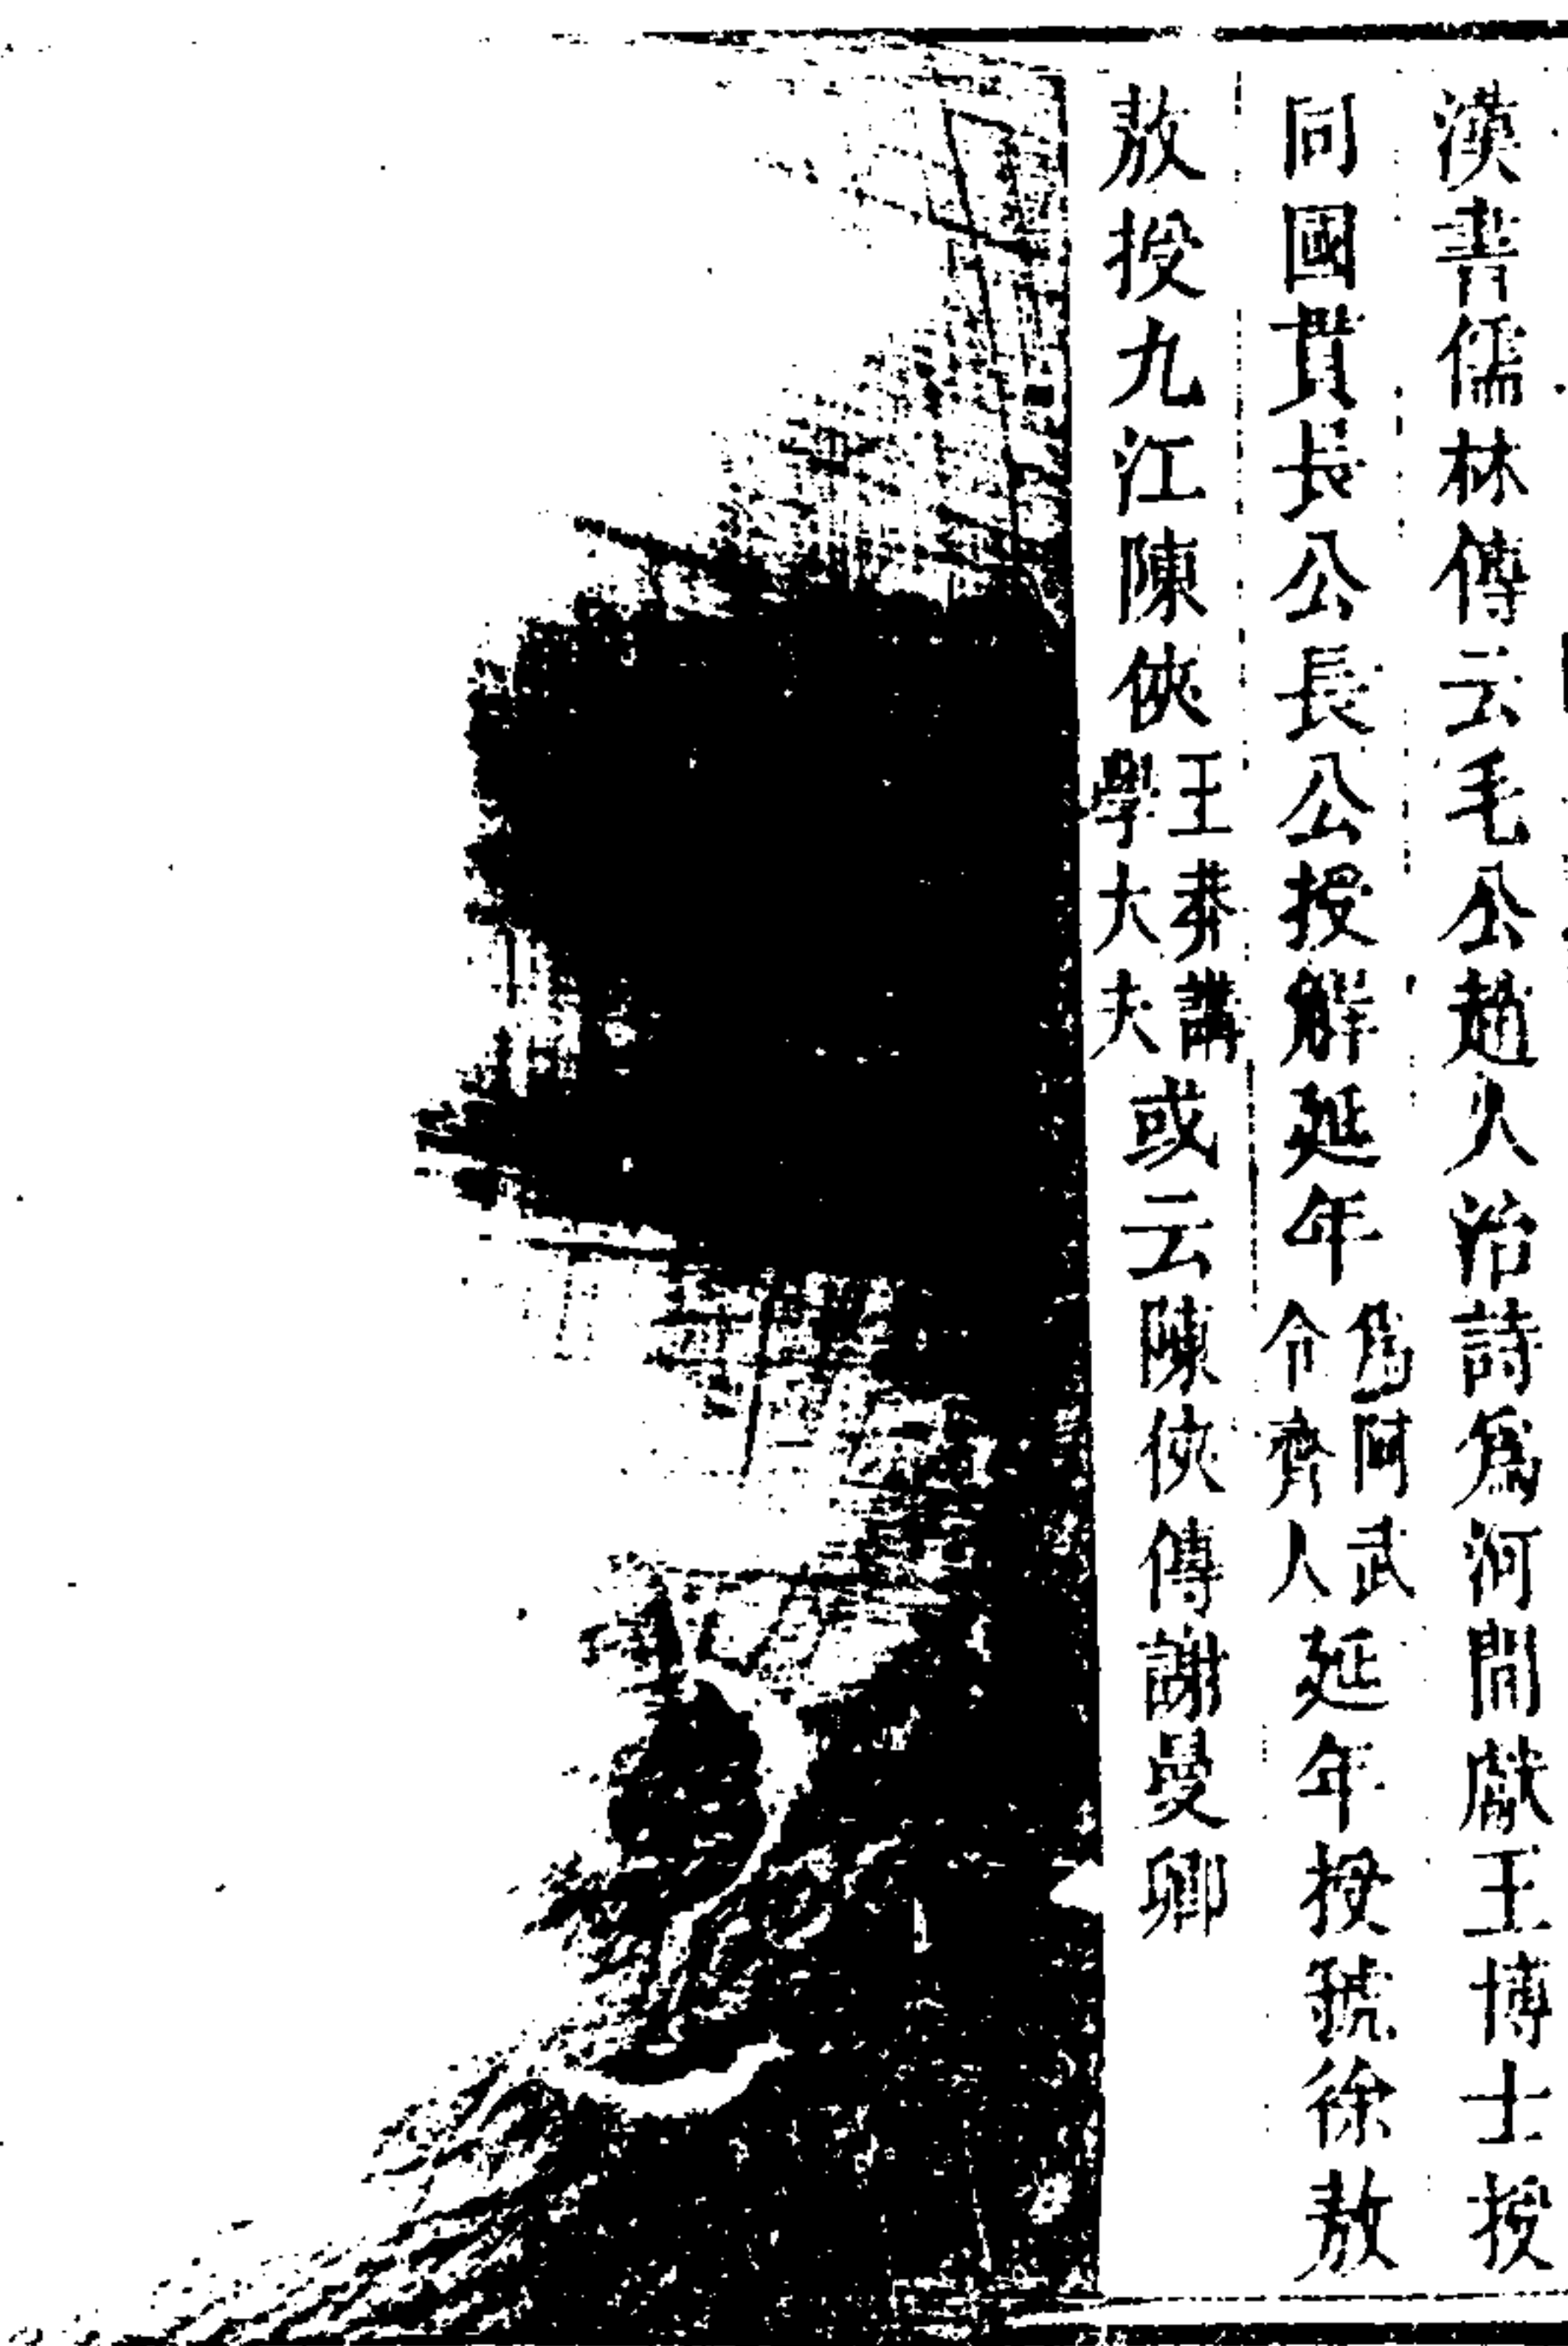 漢書儒林傳云毛公趙人治詩爲河間獻王博士授
同國貫長公長公授解延年爲阿武令齊人延年授虢徐敖
敖授九江陳俠王莽講學大夫或云陳俠傳謝曼卿